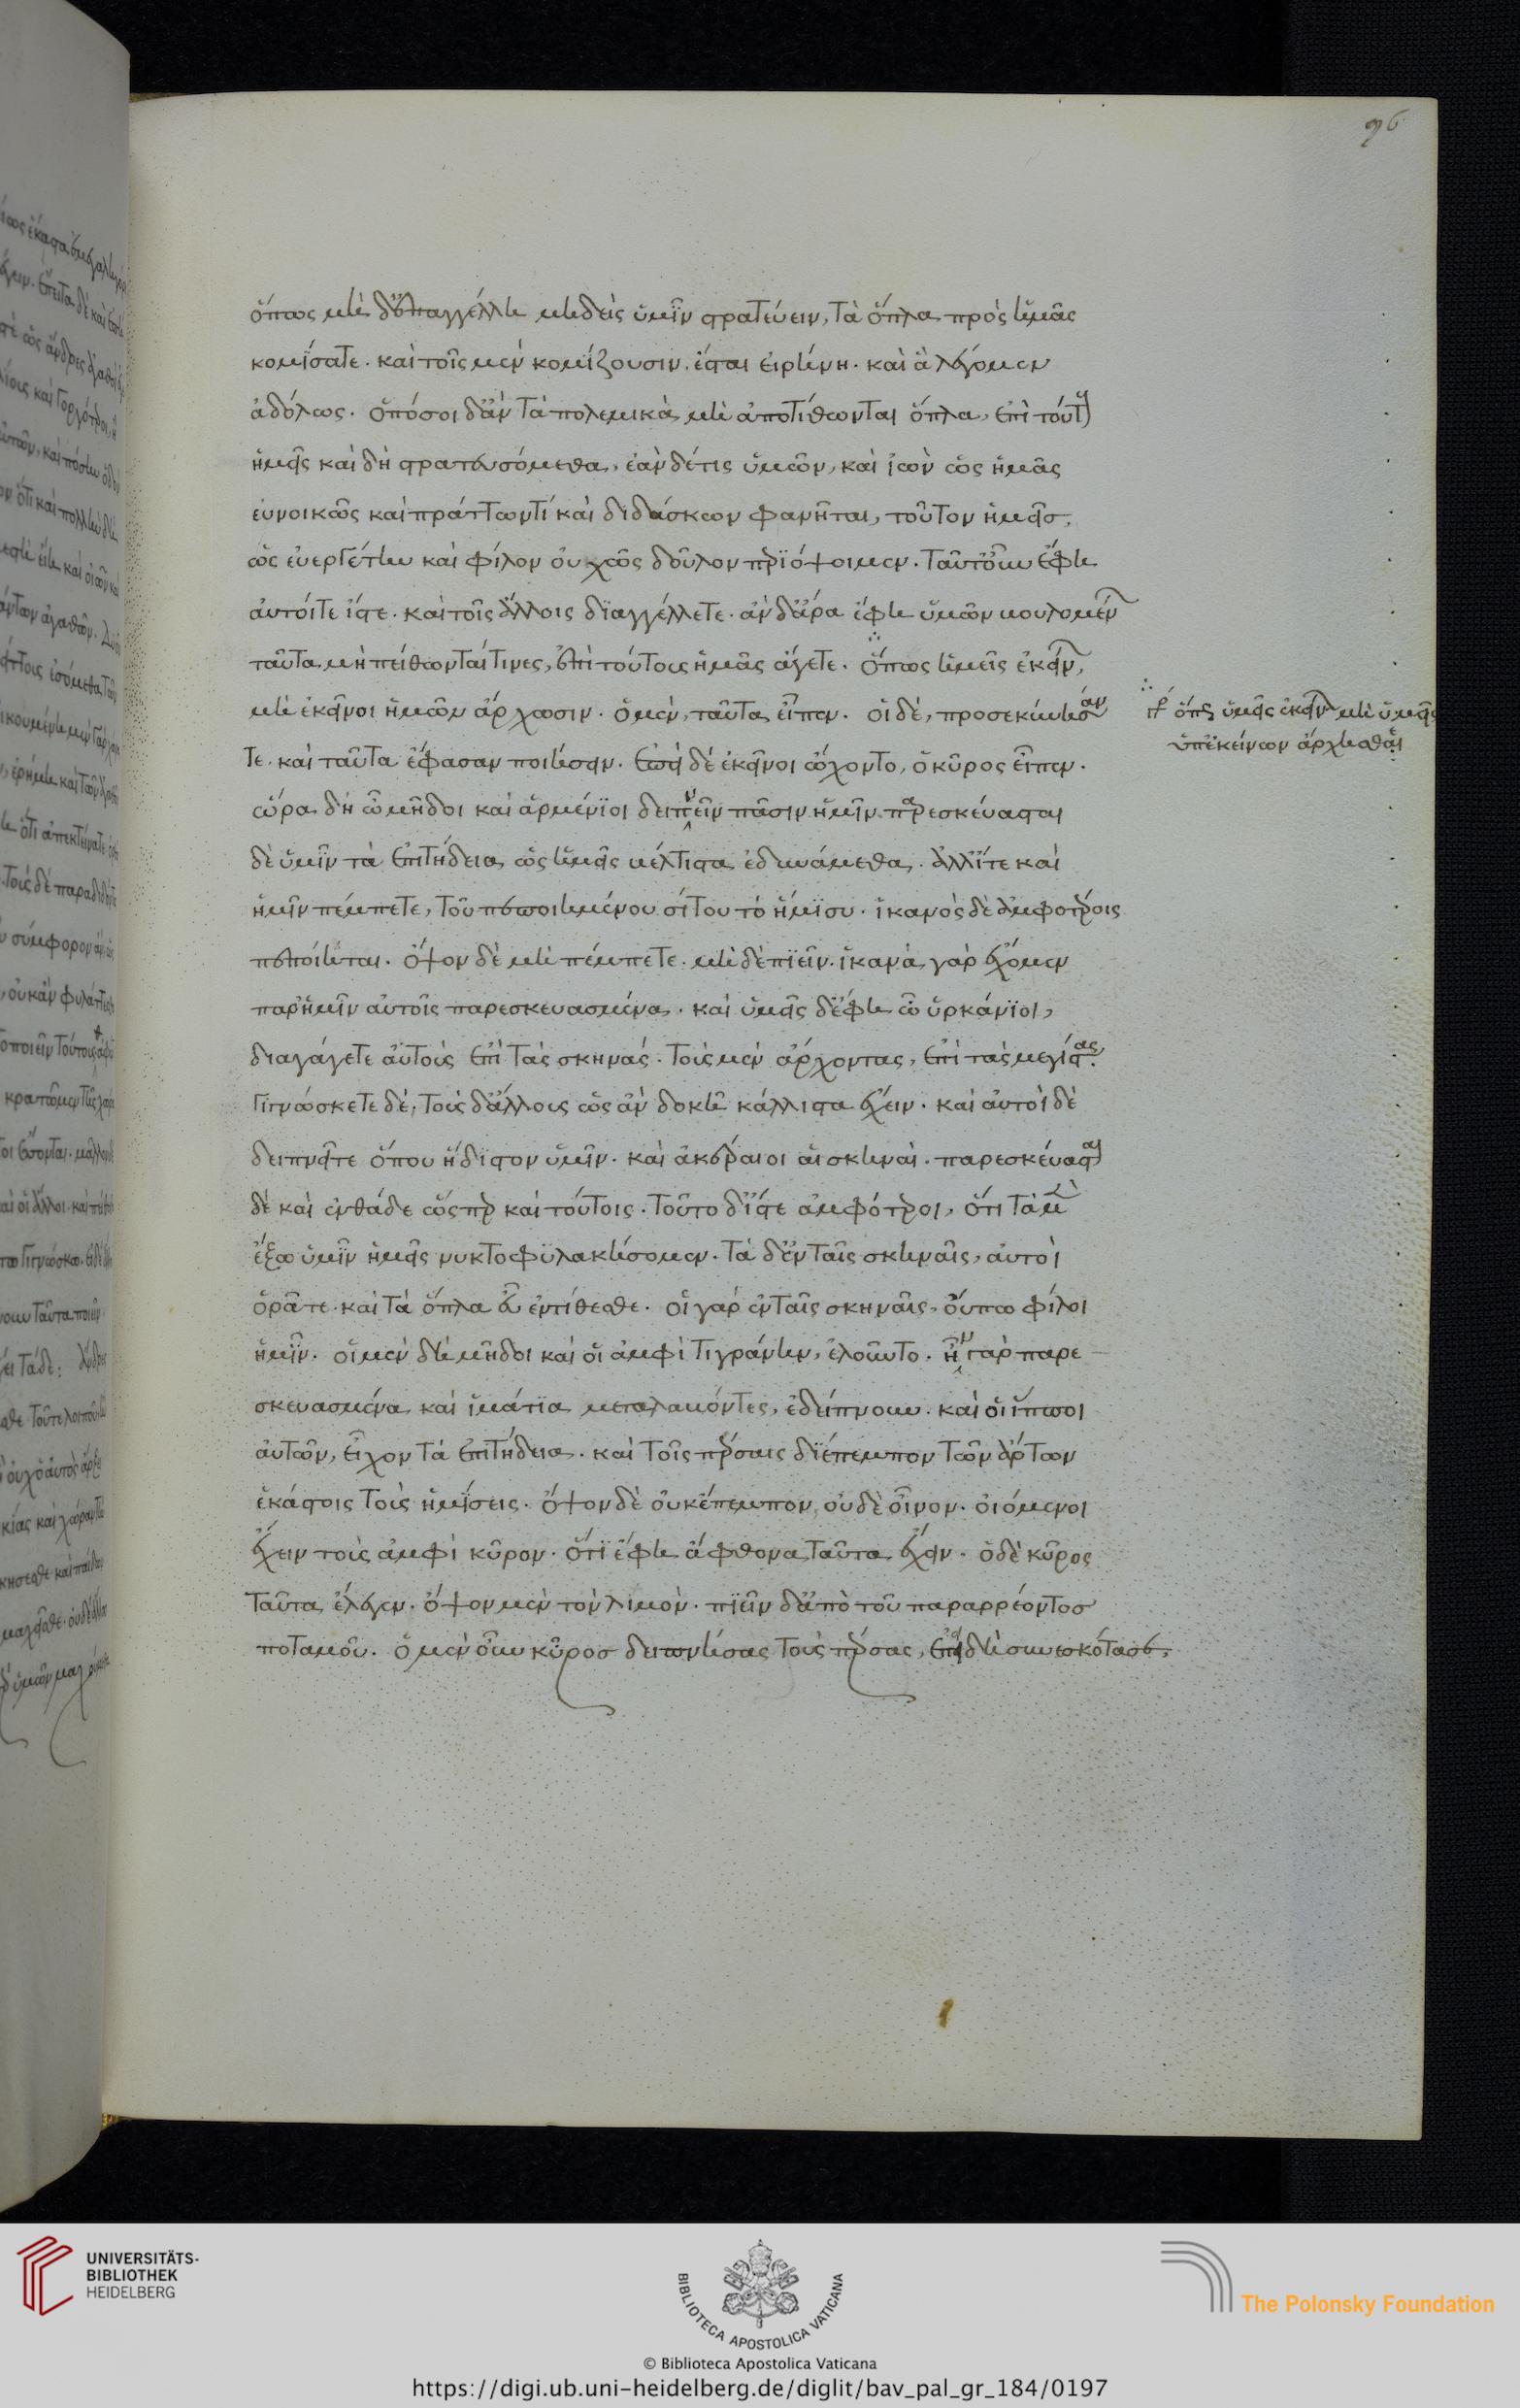 96
ὅπως μὴ δ' ἐπαγγέλλη μηδεὶς ὑμῖν στρατεύειν, τὰ ὅπλα πρὸς ἡμᾶς
κομίσατε. καὶ τοῖς μὲν κομίζουσιν, ἔσται εἰρήνη. καὶ ἃ λέγομεν
ἀδόλως. ὁπόσοι δ' ἂν τὰ πολεμικὰ μὴ ἀποτίθωνται ὅπλα, ἐπὶ τούτους
ἡμεῖς καὶ δὴ στρατευσόμεθα. ἐὰν δέ τις ὑμῶν, καὶ ἰὼν ὡς ἡμᾶς
εὐνοικῶς καὶ πράττων τί καὶ διδάσκων φανῆται, τοῦτον ἡμεῖς,
ὡς εὐεργέτην καὶ φίλον οὐχ ὡς δοῦλον περιόψοιμεν. ταῦτ' οὖν ἔφη
αὐτοί τε ἴστε. καὶ τοῖς ἄλλοις διαγγέλλετε. ἂν δ' ἄρα ἔφη ὑμῶν βουλομένων
ταῦτα μὴ πείθωνταί τινες, ἐπὶ τούτους ἡμᾶς ἄγετε. ὅπως ἡμεῖς ἐκείνων,
μὴ ἐκεῖνοι ἡμῶν ἄρχωσιν. ὁ μὲν, ταῦτα εἶπεν. οἱ δὲ, προσεκύνησάν
τε. καὶ ταῦτα ἔφασαν ποιήσειν. ἐπεὶ δὲ ἐκεῖνοι ὤχοντο, ὁ κῦρος εἶπεν.
ὥρα δὴ ὦ μῆδοι καὶ ἀρμένιοι δειπνεῖν πᾶσιν ἡμῖν. παρεσκεύασται
δὲ ὑμῖν τὰ ἐπιτήδεια ὡς ἡμεῖς βέλτιστα ἐδυνάμεθα. ἀλλ' ἴτε καὶ
ἡμῖν πέμπετε, τοῦ πεποιημένου σίτου τὸ ἥμισυ. ἱκανὸς δὲ ἀμφοτέροις
πεποίηται. ὄψον δὲ μὴ πέμπετε. μὴ δὲ πιεῖν. ἱκανὰ γὰρ ἔχομεν
παρ' ἡμῖν αὐτοῖς παρεσκευασμένα. καὶ ὑμεῖς δ' ἔφη ὦ ὑρκάνιοι,
διαγάγετε αὐτοὺς ἐπὶ τὰς σκηνάς. τοὺς μὲν ἄρχοντας, ἐπὶ τὰς μεγίστας.
γιγνώσκετε δὲ, τοὺς δ' ἄλλους ὡς ἂν δοκῆ κάλλιστα ἔχειν. καὶ αὐτοὶ δὲ
δειπνεῖτε ὅπου ἥδιστον ὑμῖν. καὶ ἀκέραιοι αἱ σκηναὶ. παρεσκεύασται
δὲ καὶ ἐνθάδε ὥσπερ καὶ τούτοις. τοῦτο δ' ἴστε ἀμφότεροι, ὅτι τὰ μὲν
ἔξω ὑμῖν ἡμεῖς νυκτοφυλακήσομεν. τὰ δ' ἐν ταῖς σκηναῖς, αὐτοὶ
ὁρᾶτε. καὶ τὰ ὅπλα εὖ ἐντίθεσθε. οἱ γὰρ ἐν ταῖς σκηναῖς, οὔπω φίλοι
ἡμῖν. οἱ μὲν δὴ μῆδοι καὶ οἱ ἀμφὶ τιγράνην, ἐλοῦντο. ἦν γὰρ παρε
σκευασμένα καὶ ἱμάτια μεταλαβόντες, ἐδείπνουν. καὶ οἱ ἵπποι
αὐτῶν, εἶχον τὰ ἐπιτήδεια. καὶ τοῖς πέρσαις διέπεμπον τῶν ἄρτων
ἑκάστοις τοὺς ἡμίσεις. ὄψον δὲ οὐκ ἔπεμπον, οὐδὲ οἶνον. οἰόμενοι
ἔχειν τοὺς ἀμφὶ κῦρον. ὅτι ἔφη ἄφθονα ταῦτα ἔχειν. ὁ δὲ κῦρος
ταῦτα ἔλεγεν. ὄψον μὲν τὸν λιμὸν. πιεῖν δ' ἀπὸ τοῦ παραρρέοντος
ποταμοῦ. ὁ μὲν οὖν κῦρος δειπνήσας τοὺς πέρσας, ἐπειδὴ συνεσκότασε,
γρ ὅπως ὑμεῖς ἐκείνων μὴ ὑμεῖς
ὑπ' ἐκείνων ἄρχησθαι
UNIVERSITÄTS-
BIBLIOTHEK
HEIDELBERG
BIBLIOTECA APOSTOLICA VATICANA
The Polonsky Foundation
© Biblioteca Apostolica Vaticana
https://digi.ub.uni-heidelberg.de/diglit/bav_pal_gr_184/0197